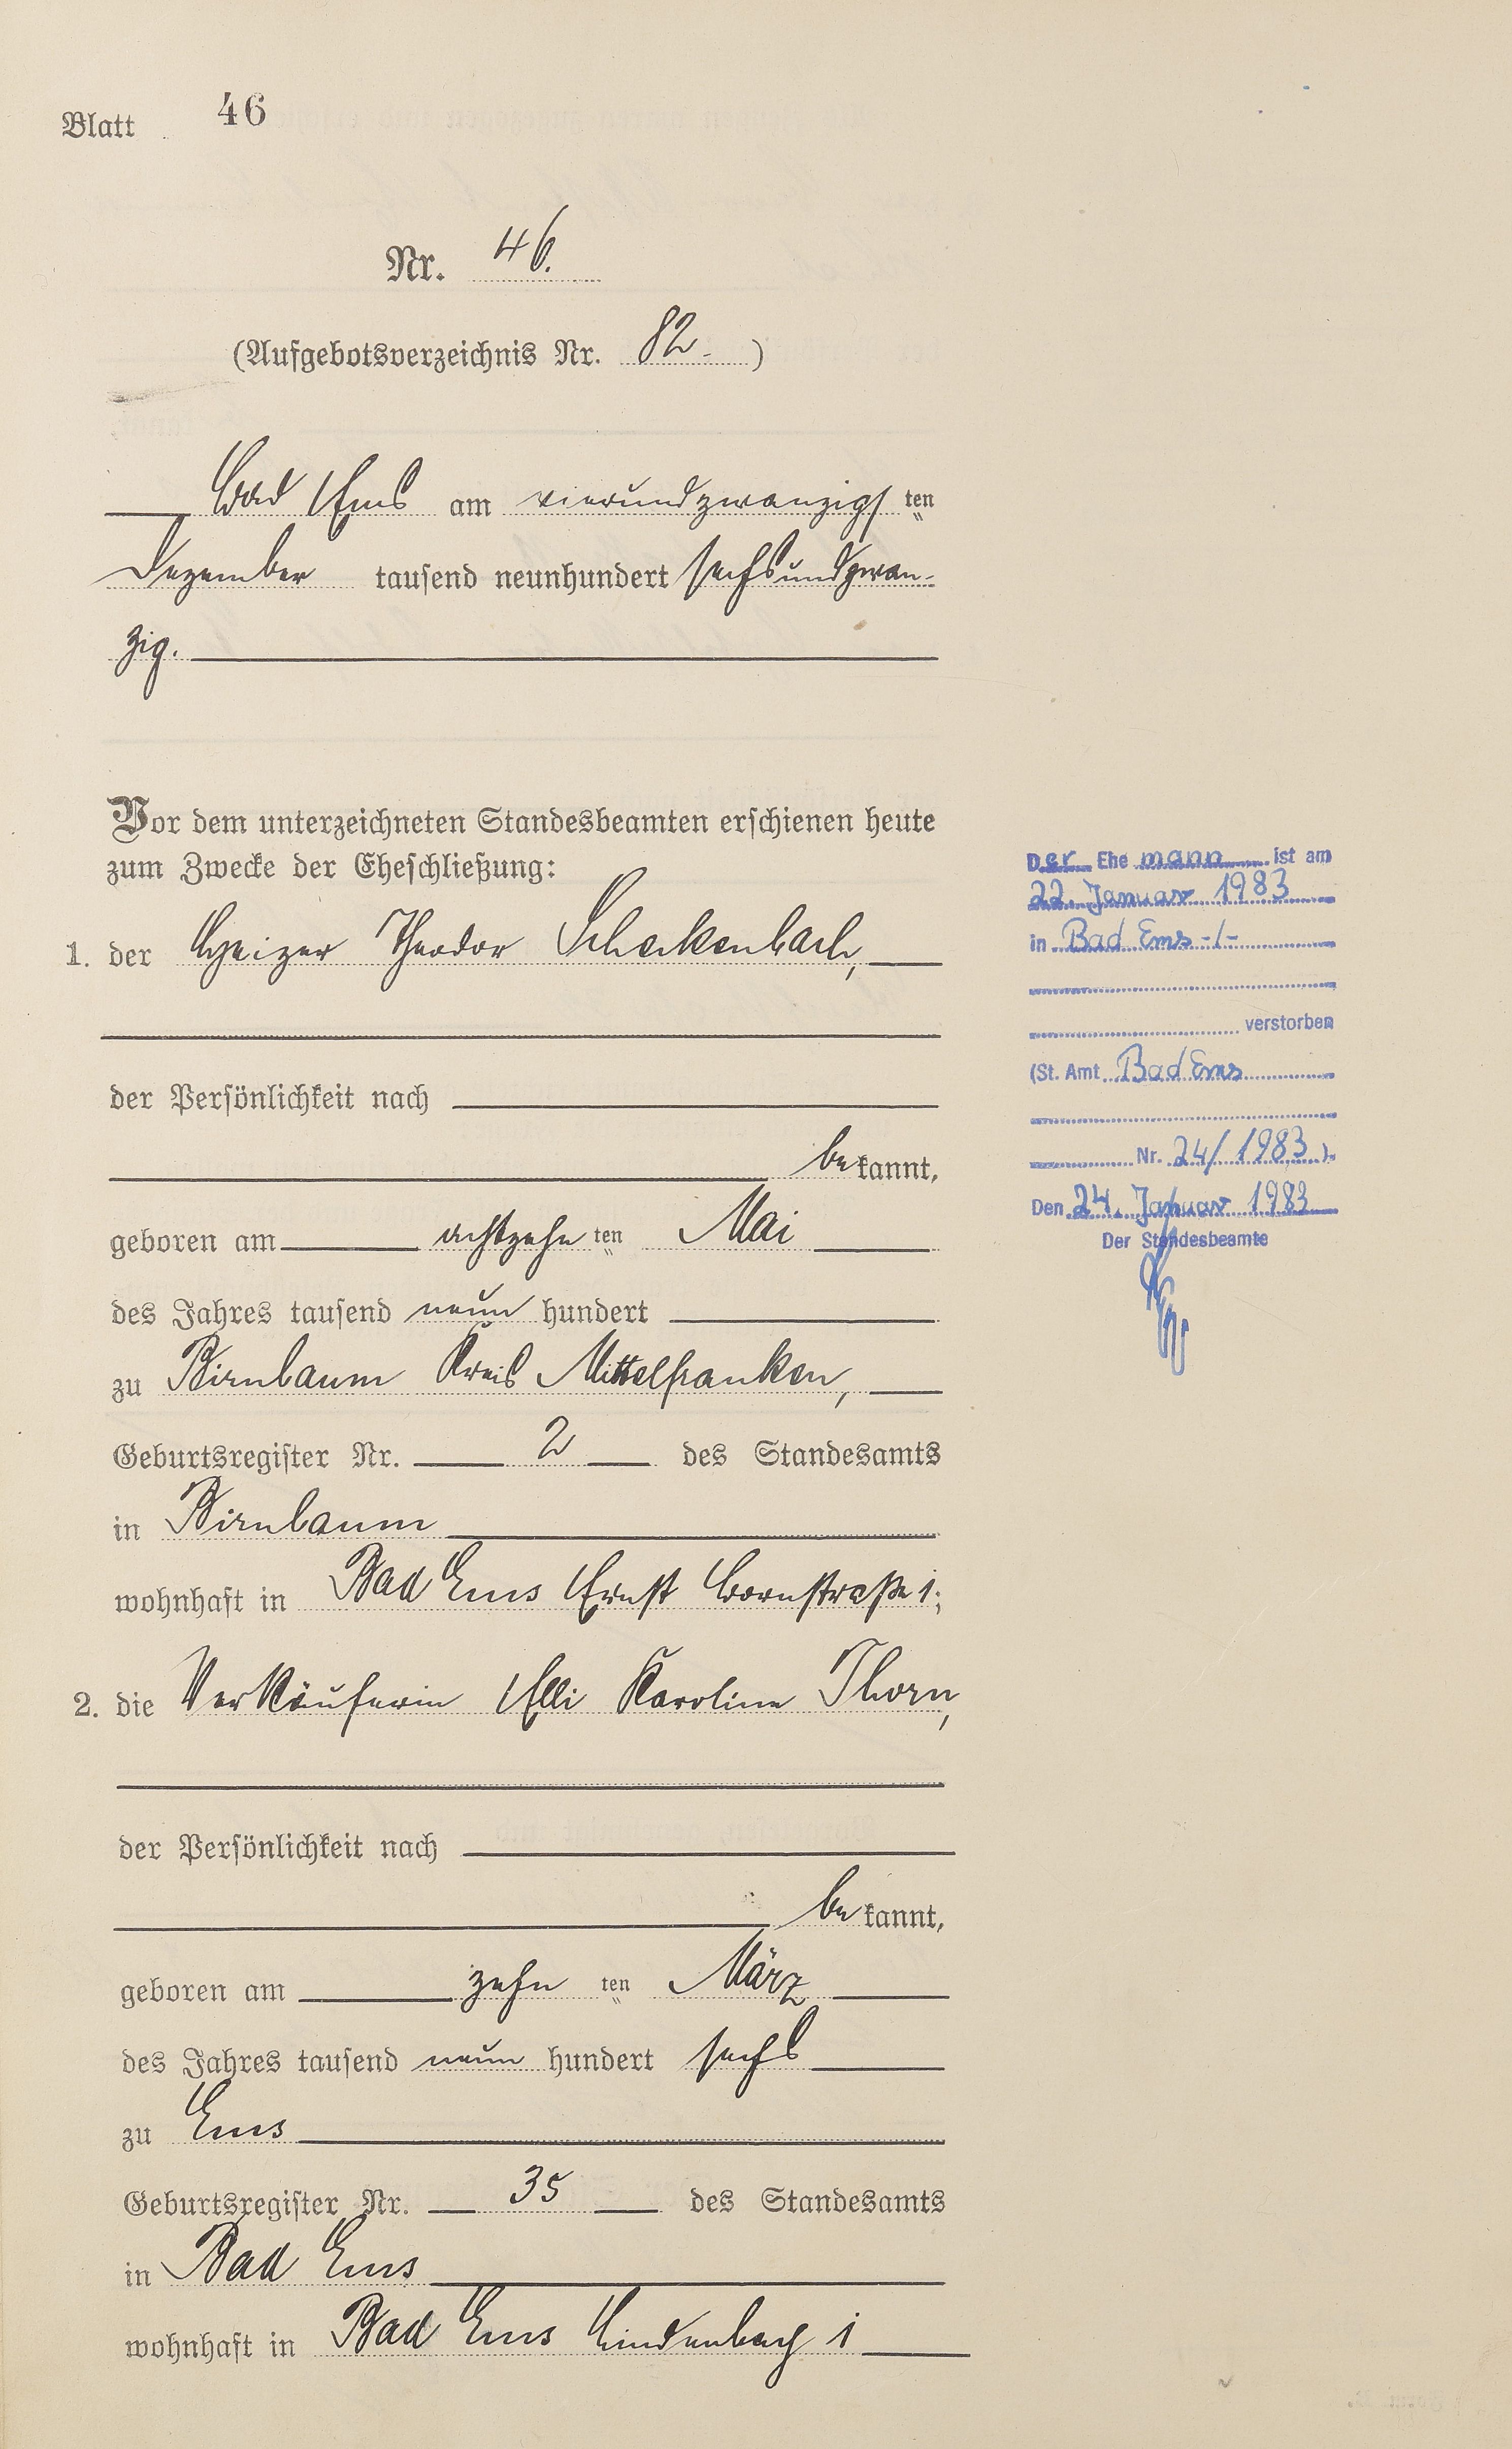 Blatt 46
Nr. 46.
(Aufgebotsverzeichnis Nr. 82.)
Bad Ems am vierundzwanzigsten
Dezember tausend neunhundert sechsundzwan-
zig.
Vor dem unterzeichneten Standesbeamten erschienen heute
zum Zwecke der Eheschließung:
1. der Heizer Theodor Scheckenbach,
der Persönlichkeit nach
bekannt,
geboren am achtzehnten Mai
des Jahres tausend neunhundert
zu Birnbaum Kreis Mittelfranken,
Geburtsregister Nr. 2 des Standesamts
in Birnbaum
wohnhaft in Bad Ems Ernst Bornstraße 1;
2. die Verkäuferin Elli Karoline Thorn,
der Persönlichkeit nach
bekannt,
geboren am zehnten März
des Jahres tausend neunhundert sechs
zu Ems
Geburtsregister Nr. 35 des Standesamts
in Bad Ems
wohnhaft in Bad Ems Lindenbach 1
Der Ehemann ist am
22. Januar 1983
in Bad Ems -/-
verstorben
(St. Amt Bad Ems
Nr. 24/1983).
Den 24. Januar 1983
Der Standesbeamte